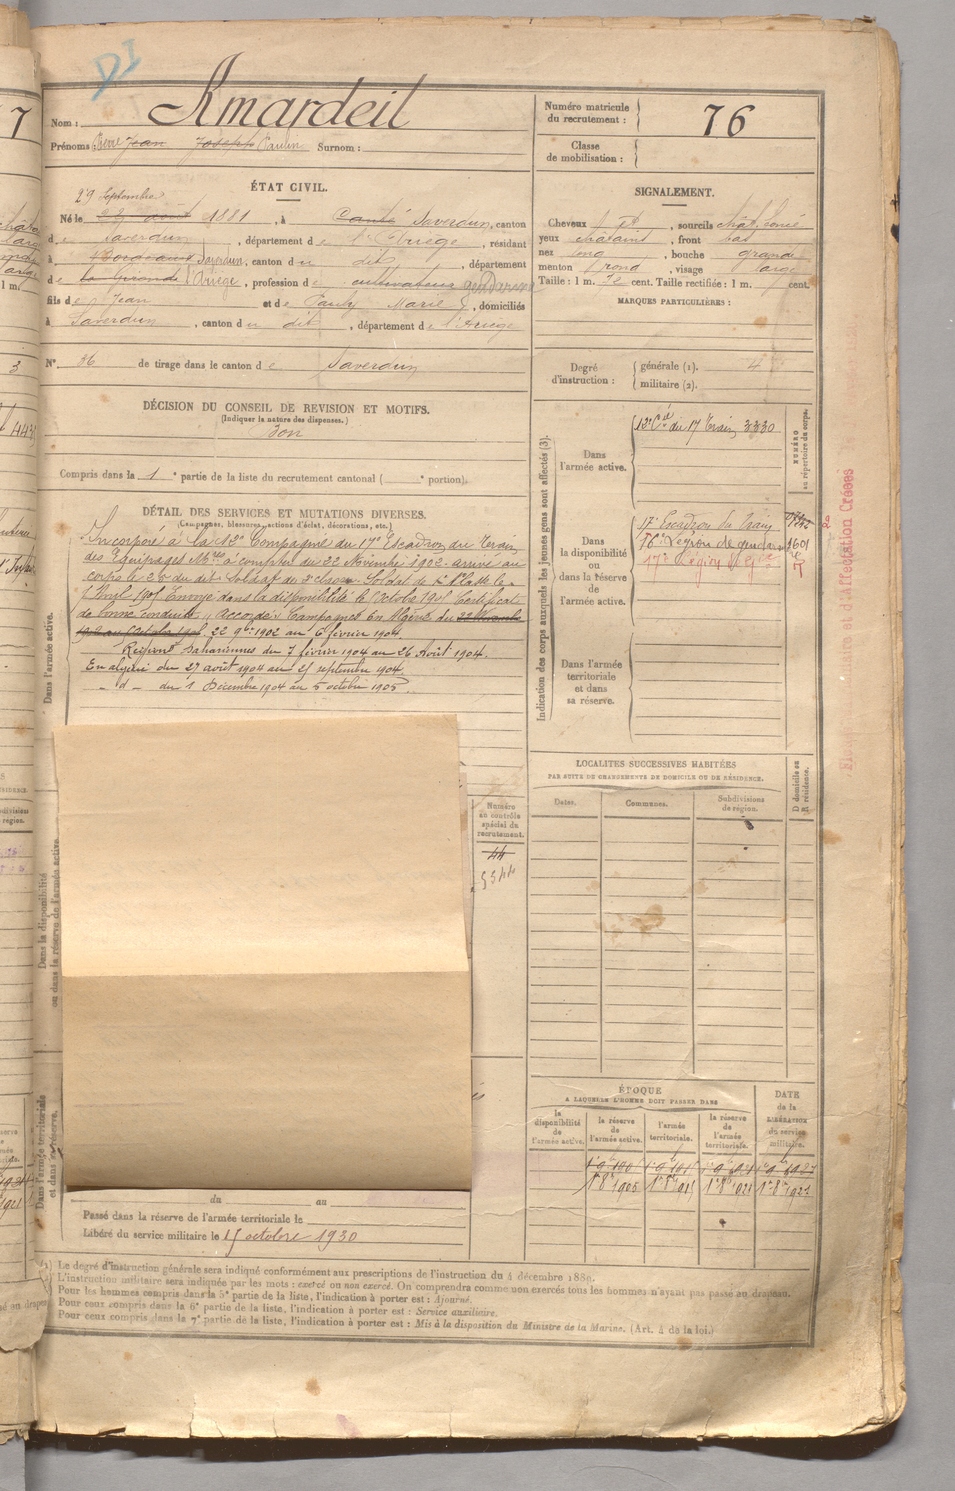 DI
Nom : Amardeil
Prénoms Pierre Jean Joseph Paulin Surnom :
Numéro matricule du recrutement : 76
Classe de mobilisation :
ÉTAT CIVIL.
29 Septembre
Né le août 1881, à Canté Saverdun, canton
de Saverdun, département de l'Ariège, résidant
à Bordeaux Saverdun, canton du dit, département
de la Gironde l'Ariège, profession de cultivateur gendarme
fils de Jean et de Pauly Marie, domiciliés
à Saverdun, canton du dit, département de l'Ariège
N° 36 de tirage dans le canton de Saverdun
SIGNALEMENT.
Cheveux, sourcils chât. foncé
yeux châtains, front bas
nez long, bouche grande
menton rond, visage large
Taille : 1 m. 72 cent. Taille rectifiée : 1 m. cent.
MARQUES PARTICULIÈRES :
Degré d'instruction : générale (1). 4
militaire (2).
DÉCISION DU CONSEIL DE REVISION ET MOTIFS.
(Indiquer la nature des dispenses.)
Bon
Compris dans la 1e partie de la liste du recrutement cantonal ( e portion).
DÉTAIL DES SERVICES ET MUTATIONS DIVERSES.
(Campagnes, blessures, actions d'éclat, décorations, etc.)
Incorporé à la 12e Compagnie du 17e Escadron du Train
des Equipages Mres à compter du 22 Novembre 1902. arrivé au
corps le dit. Soldat de 2e classe. Soldat de 1e Classe le
Envoyé dans la disponibilité le Octobre Certificat
de bonne conduite "Accordé". Campagnes En Algérie du
22 9bre 1902 au 6 février 1904.
Régions Sahariennes du 7 février 1904 au 26 Août 1904.
En algérie du 27 août 1904 au 25 septembre 1904.
- d - du 1 Décembre 1904 au 5 octobre 1905
Dans l'armée active.
Indication des corps auxquels les jeunes gens sont affectés (3).
NUMÉRO au répertoire du corps.
Dans l'armée active.
12e Cie du 17 Train 3330
Dans la disponibilité ou dans la réserve de l'armée active.
17e Escadron du Train
16e Légion de gendarm 1601
17e Légion
Dans l'armée territoriale et dans sa réserve.
d'Affectation Créées
LOCALITÉS SUCCESSIVES HABITÉES
PAR SUITE DE CHANGEMENTS DE DOMICILE OU DE RÉSIDENCE.
Dates. Communes. Subdivisions de région. D domicile ou R résidence.
Numéro au contrôle spécial du recrutement.
44
5344
Dans la disponibilité ou dans la réserve de l'armée active.
Dans l'armée territoriale et dans sa réserve.
ÉPOQUE
A LAQUELLE L'HOMME DOIT PASSER DANS
DATE de la LIBÉRATION du service militaire.
la disponibilité de l'armée active. la réserve de l'armée active. l'armée territoriale. la réserve de l'armée territoriale.
du au
Passé dans la réserve de l'armée territoriale le
Libéré du service militaire le 15 octobre 1930
(1) Le degré d'instruction générale sera indiqué conformément aux prescriptions de l'instruction du 4 décembre 1889.
L'instruction militaire sera indiquée par les mots : exercé ou non exercé. On comprendra comme non exercés tous les hommes n'ayant pas passé au drapeau.
Pour les hommes compris dans la 5e partie de la liste, l'indication à porter est : Ajourné.
Pour ceux compris dans la 6e partie de la liste, l'indication à porter est : Service auxiliaire.
Pour ceux compris dans la 7e partie de la liste, l'indication à porter est : Mis à la disposition du Ministre de la Marine. (Art. 4 de la loi.)